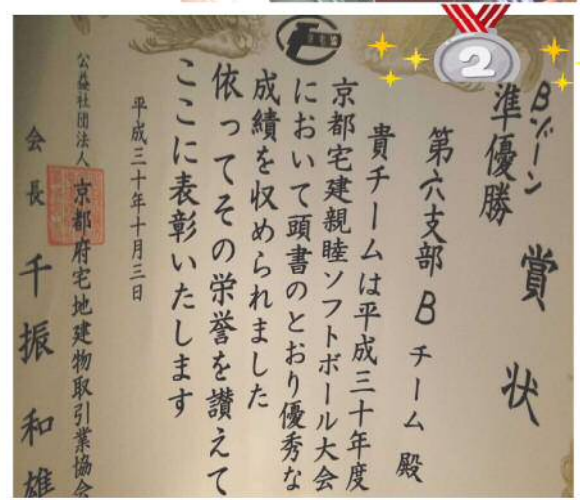 賞状
Bゾーン
準優勝
第六支部 B チーム 殿
貴チームは平成三十年度
京都宅建親睦ソフトボール大会
において頭書のとおり優秀な
成績を収められました
依ってその栄誉を讃えて
ここに表彰いたします
平成三十年十月三日
公益社団法人 京都府宅地建物取引業協会
会長 千振和雄
2